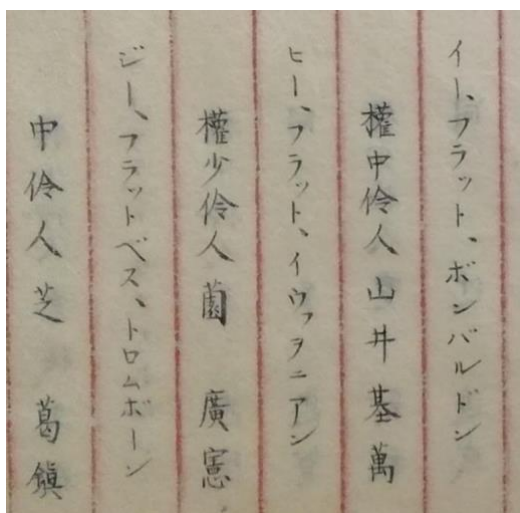 イー、フラット、ボンバルドン
權中伶人 山井基萬
ヒー、フラット、イウフヲニアン
權少伶人 薗 廣憲
ジー、フラットベス、トロムボーン
中伶人 芝 葛鎭